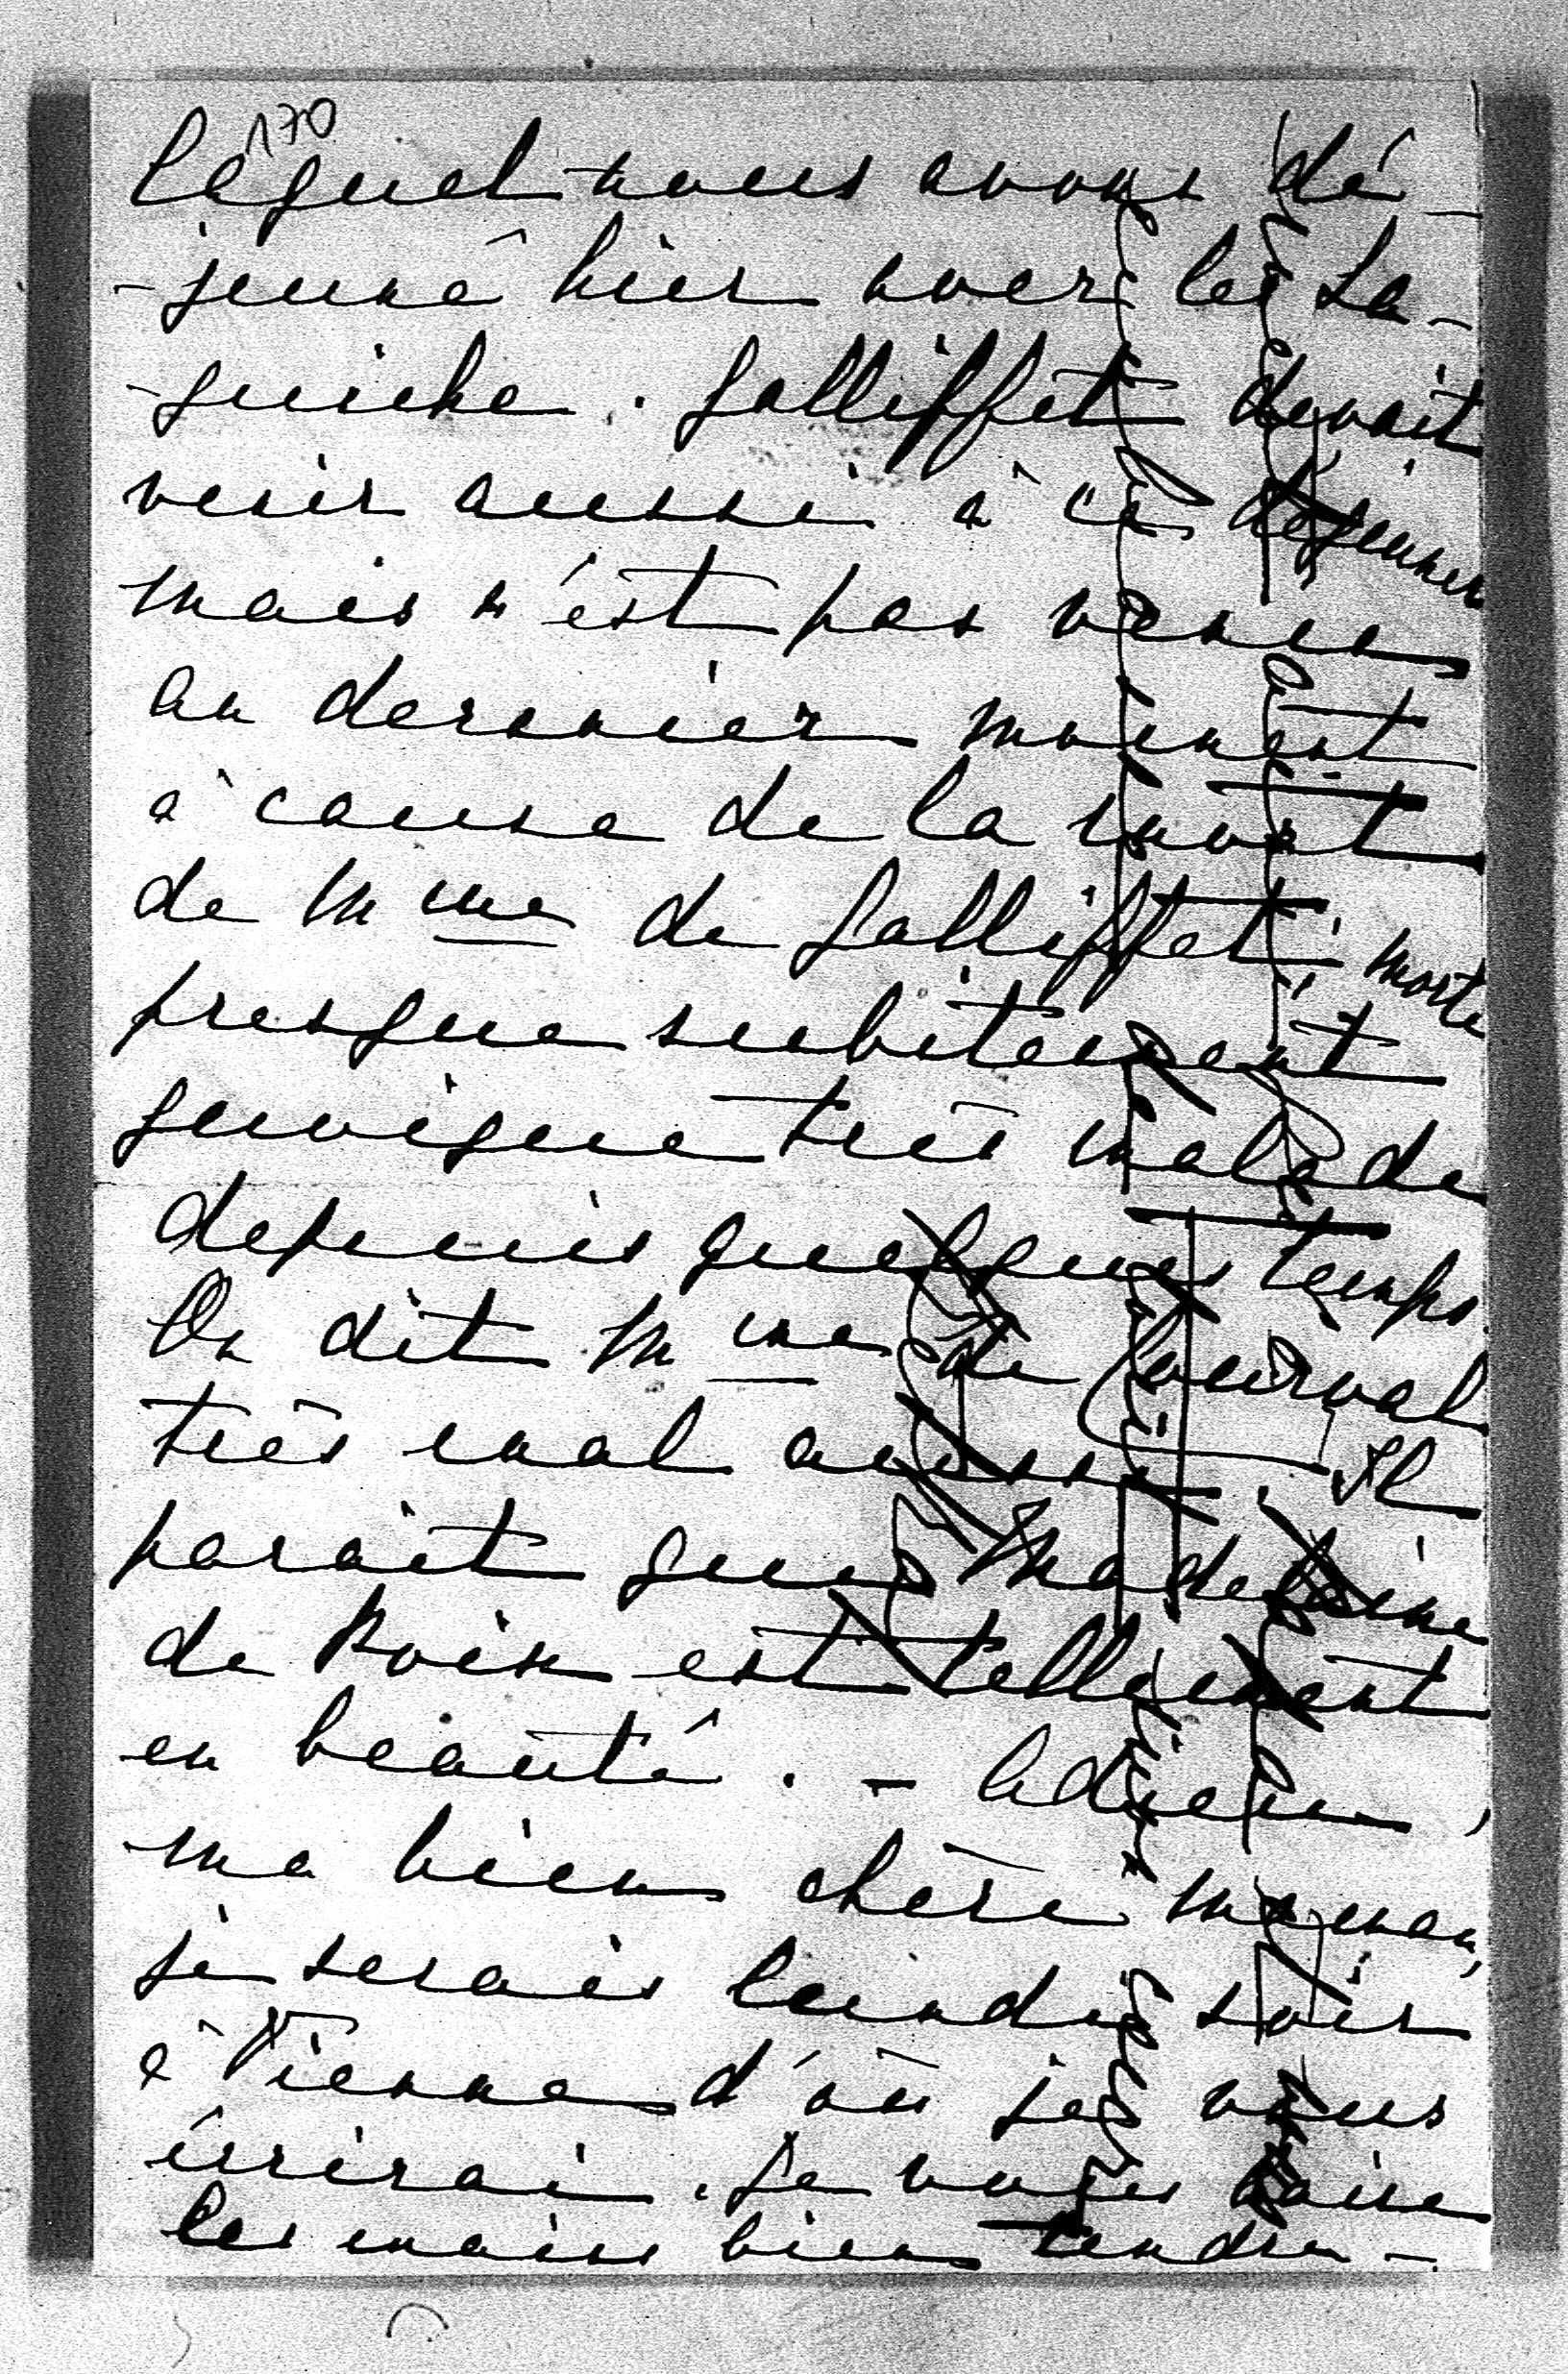 170
lequel nous avons dé-
-jeuné hier avec les La-
-guiche. Galliffet devait
venir aussi à ce déjeuner
mais n'est pas venu
au dernier moment
à cause de la mort
de Mme de Galliffet, morte
presque subitement
quoique très malade
depuis quelques temps.
On dit Mme de Courval
très mal aussi. Il
parait que Madeleine
de Noin est tellement
en beauté. - Adieu,
ma bien chère maman,
je serais lundi soir
à Vienne d'où je vous
écrirai. Je vous baise
les mains bien tendre-